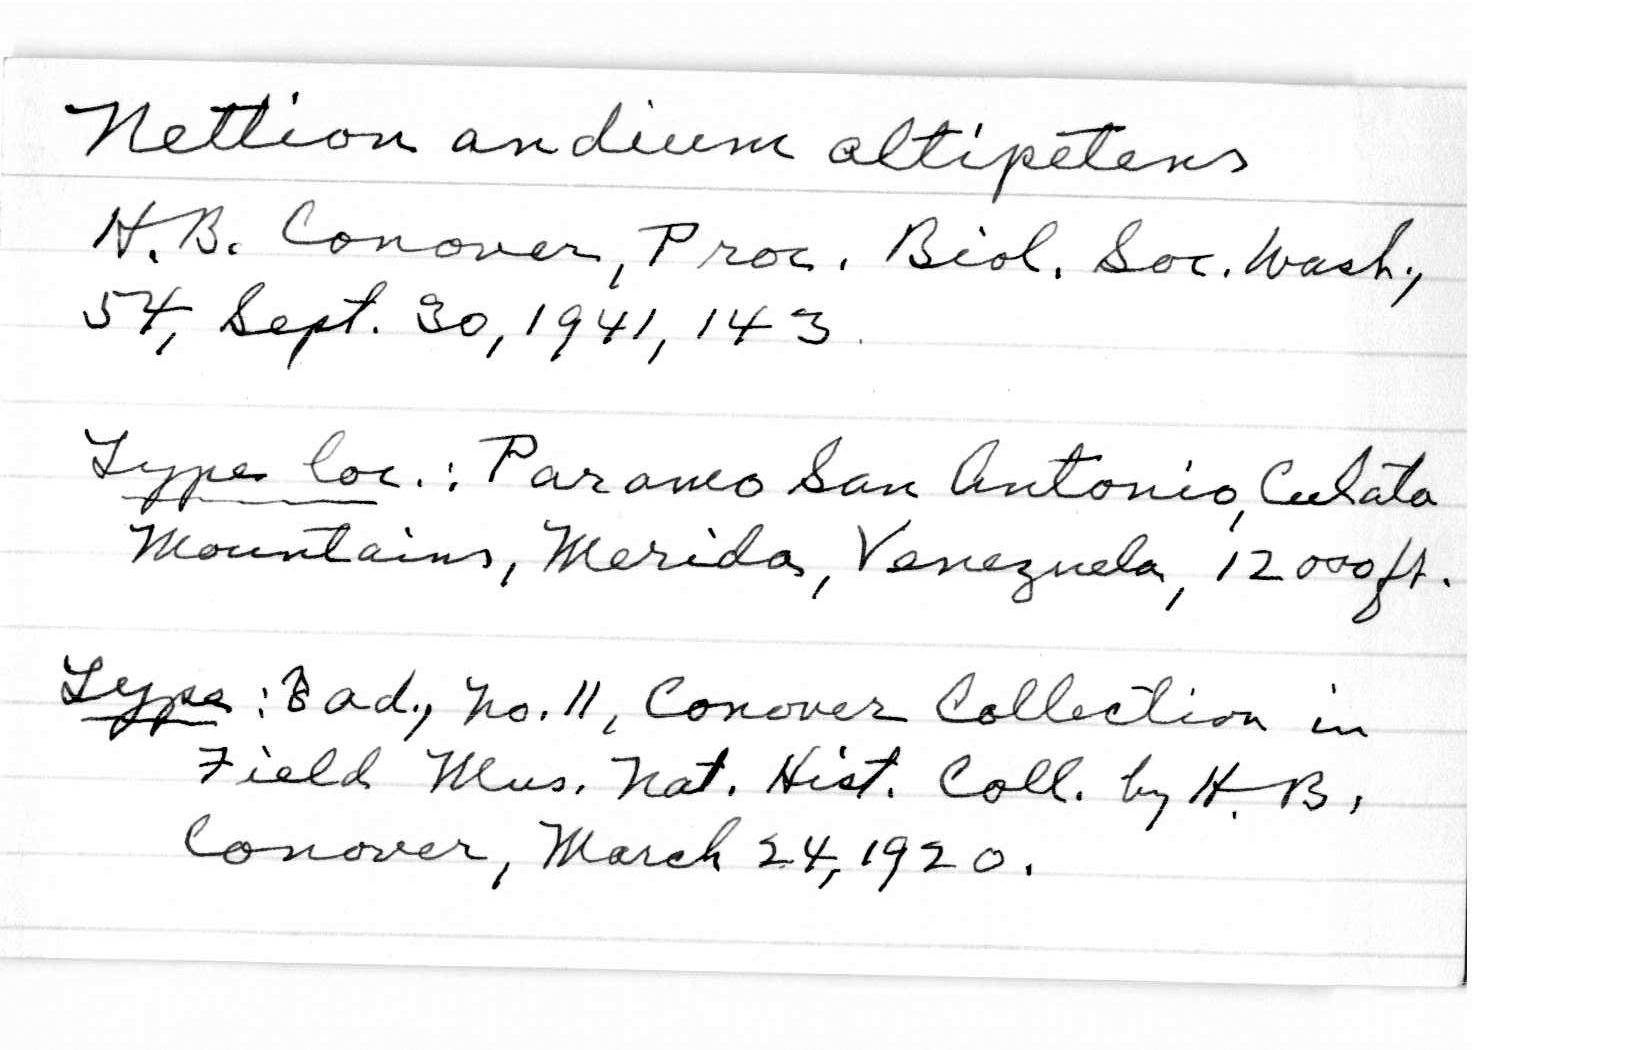 Nettion andium altipetens
H.B. Conover, Proc. Biol. Soc. Wash.,
54, Sept. 30, 1941, 143.
Type loc.: Paramo San Antonio, Culata
Mountains, Merida, Venezuela, 12000 ft.
Type: ad., No. 11, Conover Collection in
Field Mus. Nat. Hist. Coll. by H.B.
Conover, March 24, 1920.